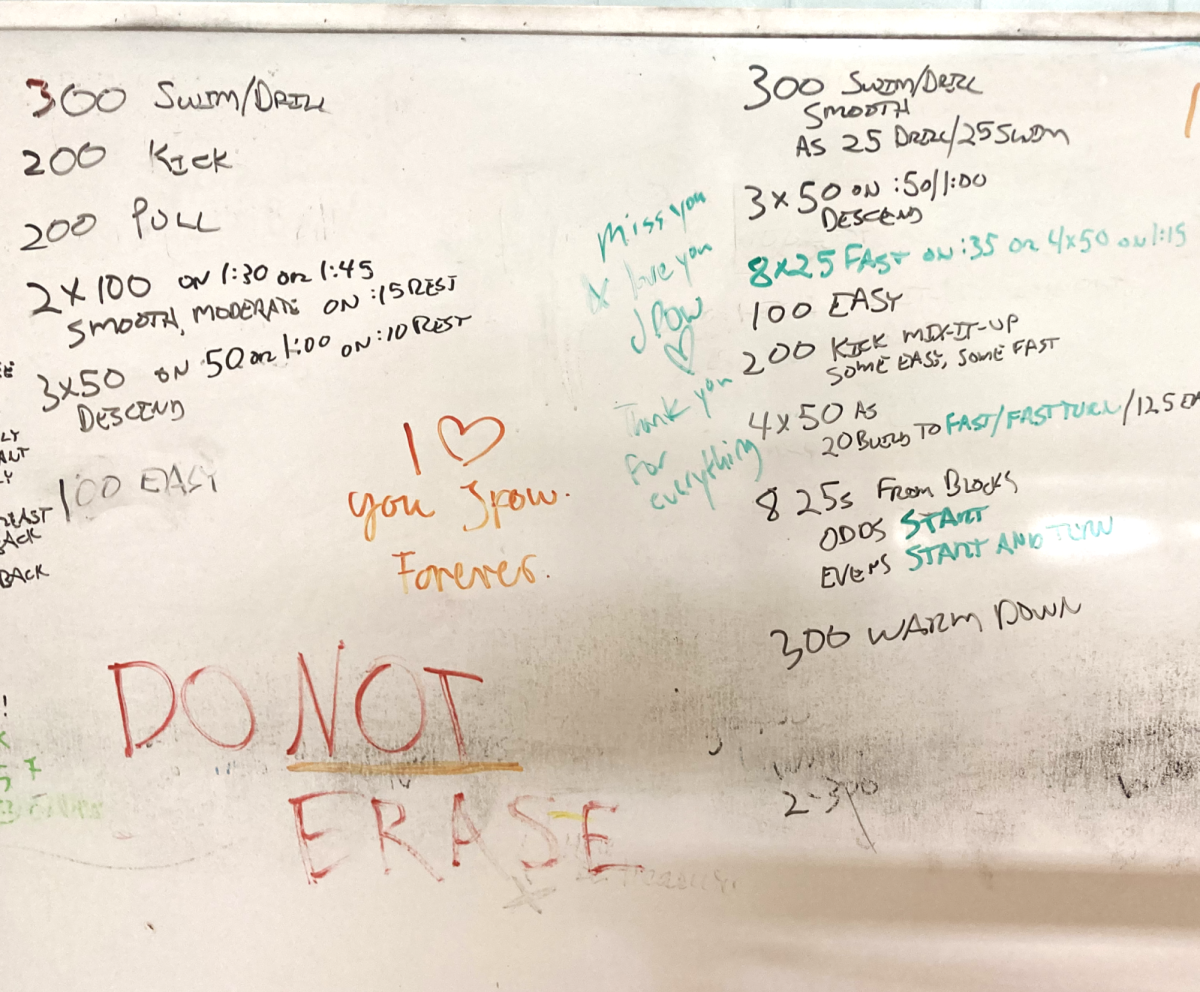 300 SWIM/DRILL
200 KICK
200 PULL
2 X 100 ON 1:30 OR 1:45
SMOOTH, MODERATE ON :15 REST
3X50 ON 50 OR 1:00 ON :10 REST
DESCEND
100 EASY
BACK
I ♡
you Jpow.
Forever.
DO NOT
ERASE
miss you
& love you
JPOW
♡
Thank you
For
everything
300 SWIM/DRILL
SMOOTH
AS 25 DRILL/25 SWIM
3 X 50 ON :50/1:00
DESCEND
8X25 FAST ON :35 OR 4X50 ON 1:15
100 EASY
200 KICK MIX-IT-UP
SOME EASY, SOME FAST
4 X 50 AS
20 BUILD TO FAST/FAST TURN/12.5 EA
8 25s FROM BLOCKS
ODDS START
EVENS START AND TURN
300 WARM DOWN